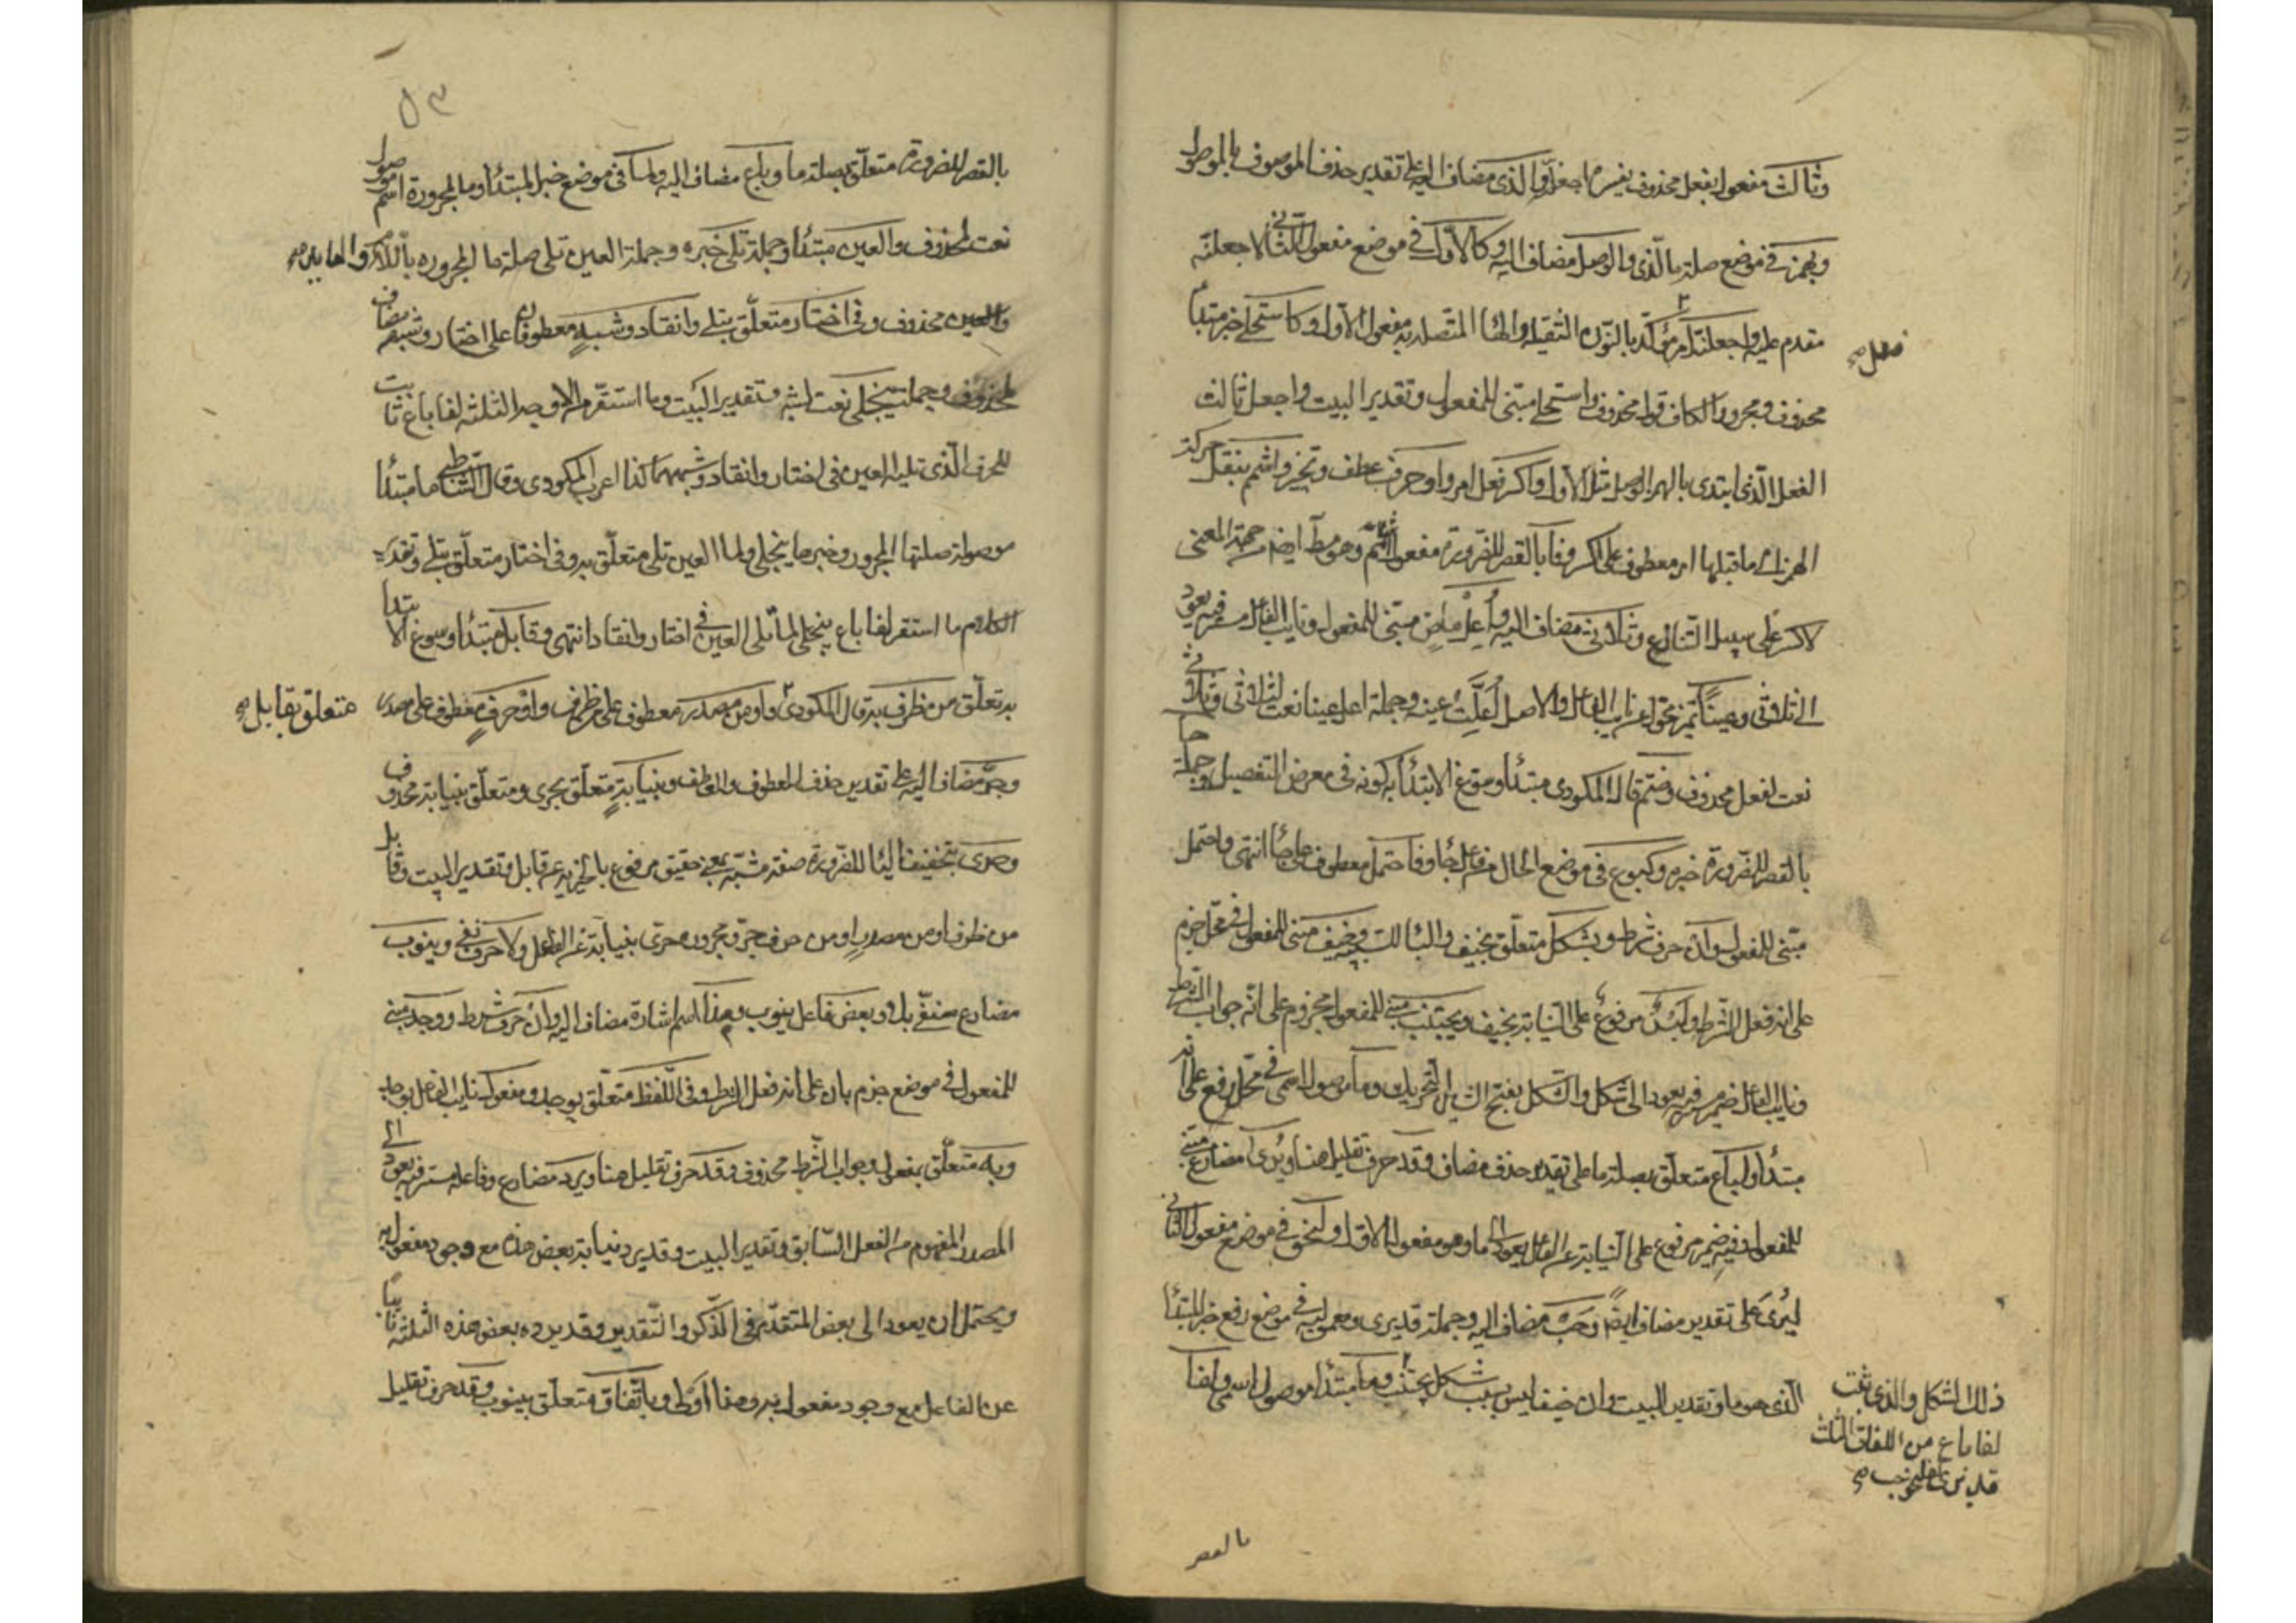 وثالث مفعول بفعل محذوف يفسره اجعلنه والذي مضاف اليه على تقدير حذف الموصوف بالموصول
وبهمز في موضع صلة الذي والوصل مضاف اليه وكالاول في موضع مفعول الثاني لاجعلنه
مقدم عليه واجعلنه امر مؤكد بالنون الثقيلة والهاء المتصلة به مفعول الاول وكاستحلي خبر مبتدا
محذوف ومجرور الكاف قول محذوف واستحلي مبني للمفعول وتقدير البيت واجعل ثالث
الفعل الذي ابتدي بالهمز الوصل مثل الاول واكسر فعل امر واو حرف عطف وتخيير واشمم بنقل حركة
الهمز الى ما قبلها امر معطوف على اكسر وفا بالقصر للضرورة مفعول اشمم وهو مط ايضا من جهة المعنى
لاكسر على سبيل التنازع وثلاثي مضاف اليه واعل ماض مبني للمفعول ونايب الفاعل مستتر فيه يعود
الى ثلاثي وعينا تميز محول عن نايب الفاعل والاصل اعلت عينه وجملة اعل عينا نعت لثلاثي وثلاثي
نعت لفعل محذوف وضم قال المكودي مبتدا وسوغ الابتداء به كونه في معرض التفصيل وجملة جا
بالقصر للضرورة خبره وكبوع في موضع الحال من فاعل جا وفاحتمل معطوف على جا انتهى واحتمل
مبني للمفعول وان حرف شرط وبشكل متعلق بخيف والبا للسببية وخيف مبني للمفعول في محل جزم
على انه فعل الشرط ولبس مرفوع على النيابة بخيف ويجتنب مبني للمفعول مجزوم على انه جواب الشرط
ونايب الفاعل ضمير مستتر فيه يعود الى شكل والشكل بفتح الشين التحريك وما موصول اسمي في محل رفع على انه
مبتدا ولباع متعلق بصلة ما على تقدير حذف مضاف وقد حرف تقليل هنا ويرى مضارع مبني
للمفعول وفيه ضمير مرفوع على النيابة عن الفاعل يعود الى ما وهو مفعوله الاول ولنحو في موضع مفعول الثاني
ليرى على تقدير مضاف ايضا وحب مضاف اليه وجملة قد يرى ومعموليه في موضع رفع خبر المبتدا
الذي هو ما وتقدير البيت وان خيف لبس بسبب شكل يجتنب وما مبتدا موصول اسمي ولفا
ذلك الشكل والذي ثبت
لفا باع من اللغات الثلث
قد يرى لنحو حب صح
بالقصر
٥٣
بالقصر للضرورة متعلق بصلة ما وباع مضاف اليه ولما في موضع خبر المبتدا وما المجرورة اسم موصول
نعت لمحذوف والعين مبتدا وجملة تلي خبره وجملة العين تلي صلة ما المجرورة باللام والعايد صح
محذوف وفي اختار متعلق بتلي وانقاد وشبه معطوفان على اختار وشبه مضاف
لمحذوف وجملة ينجلي نعت لشبه وتقدير البيت وما استقر من الاوجه الثلثة لفا باع ثابت
للحرف الذي تليه العين في اختار وانقاد وشبههما كذا اعرب المكودي وقال الشاطبي ما مبتدا
موصولة صلتها المجرور وخبرها ينجلي ولما العين تلي متعلق به وفي اختار متعلق بتلي وتقدير
الكلام ما استقر لفا باع ينجلي لما تلي العين في اختار وانقاد انتهى وقابل مبتدا وسوغ الابتدا
به تعلق من ظرف به قال المكودي واو من مصدر معطوف على ظرف واو حرف معطوف على مصدر
متعلق بقابل صح
وجر مضاف اليه على تقدير حذف المعطوف والعاطف وبنيابة متعلق بحري ومتعلق بنيابة محذوف
وحري بتخفيف اليا للضرورة صفة مشبهة بمعنى حقيق مرفوع بالخبرية عن قابل وتقدير البيت وقابل
من ظرف او من مصدر او من حرف جر ومجروره حري بنيابة عن الفاعل ولا حرف نفي وينوب
مضارع منفي بلا وبعض فاعل ينوب وهذا اسم اشارة مضاف اليه وان حرف شرط ووجد مبني
للمفعول في موضع جزم بان على انه فعل الشرط وفي اللفظ متعلق بوجد ومفعول نايب الفاعل بوجد
وبه متعلق بمفعول وجواب الشرط محذوف وقد حرف تقليل هنا ويرد مضارع وفاعله مستتر فيه يعود الى
المصدر المفهوم من الفعل السابق وتقدير البيت وقد يرد نيابة بعض هذه مع وجود مفعول به
ويحتمل ان يعود الى بعض المتقدم في الذكر والتقدير وقد يرد بعض هذه الثلثة نايبا
عن الفاعل مع وجود مفعول به وهذا اولى وباتفاق متعلق بينوب وقد حرف تقليل